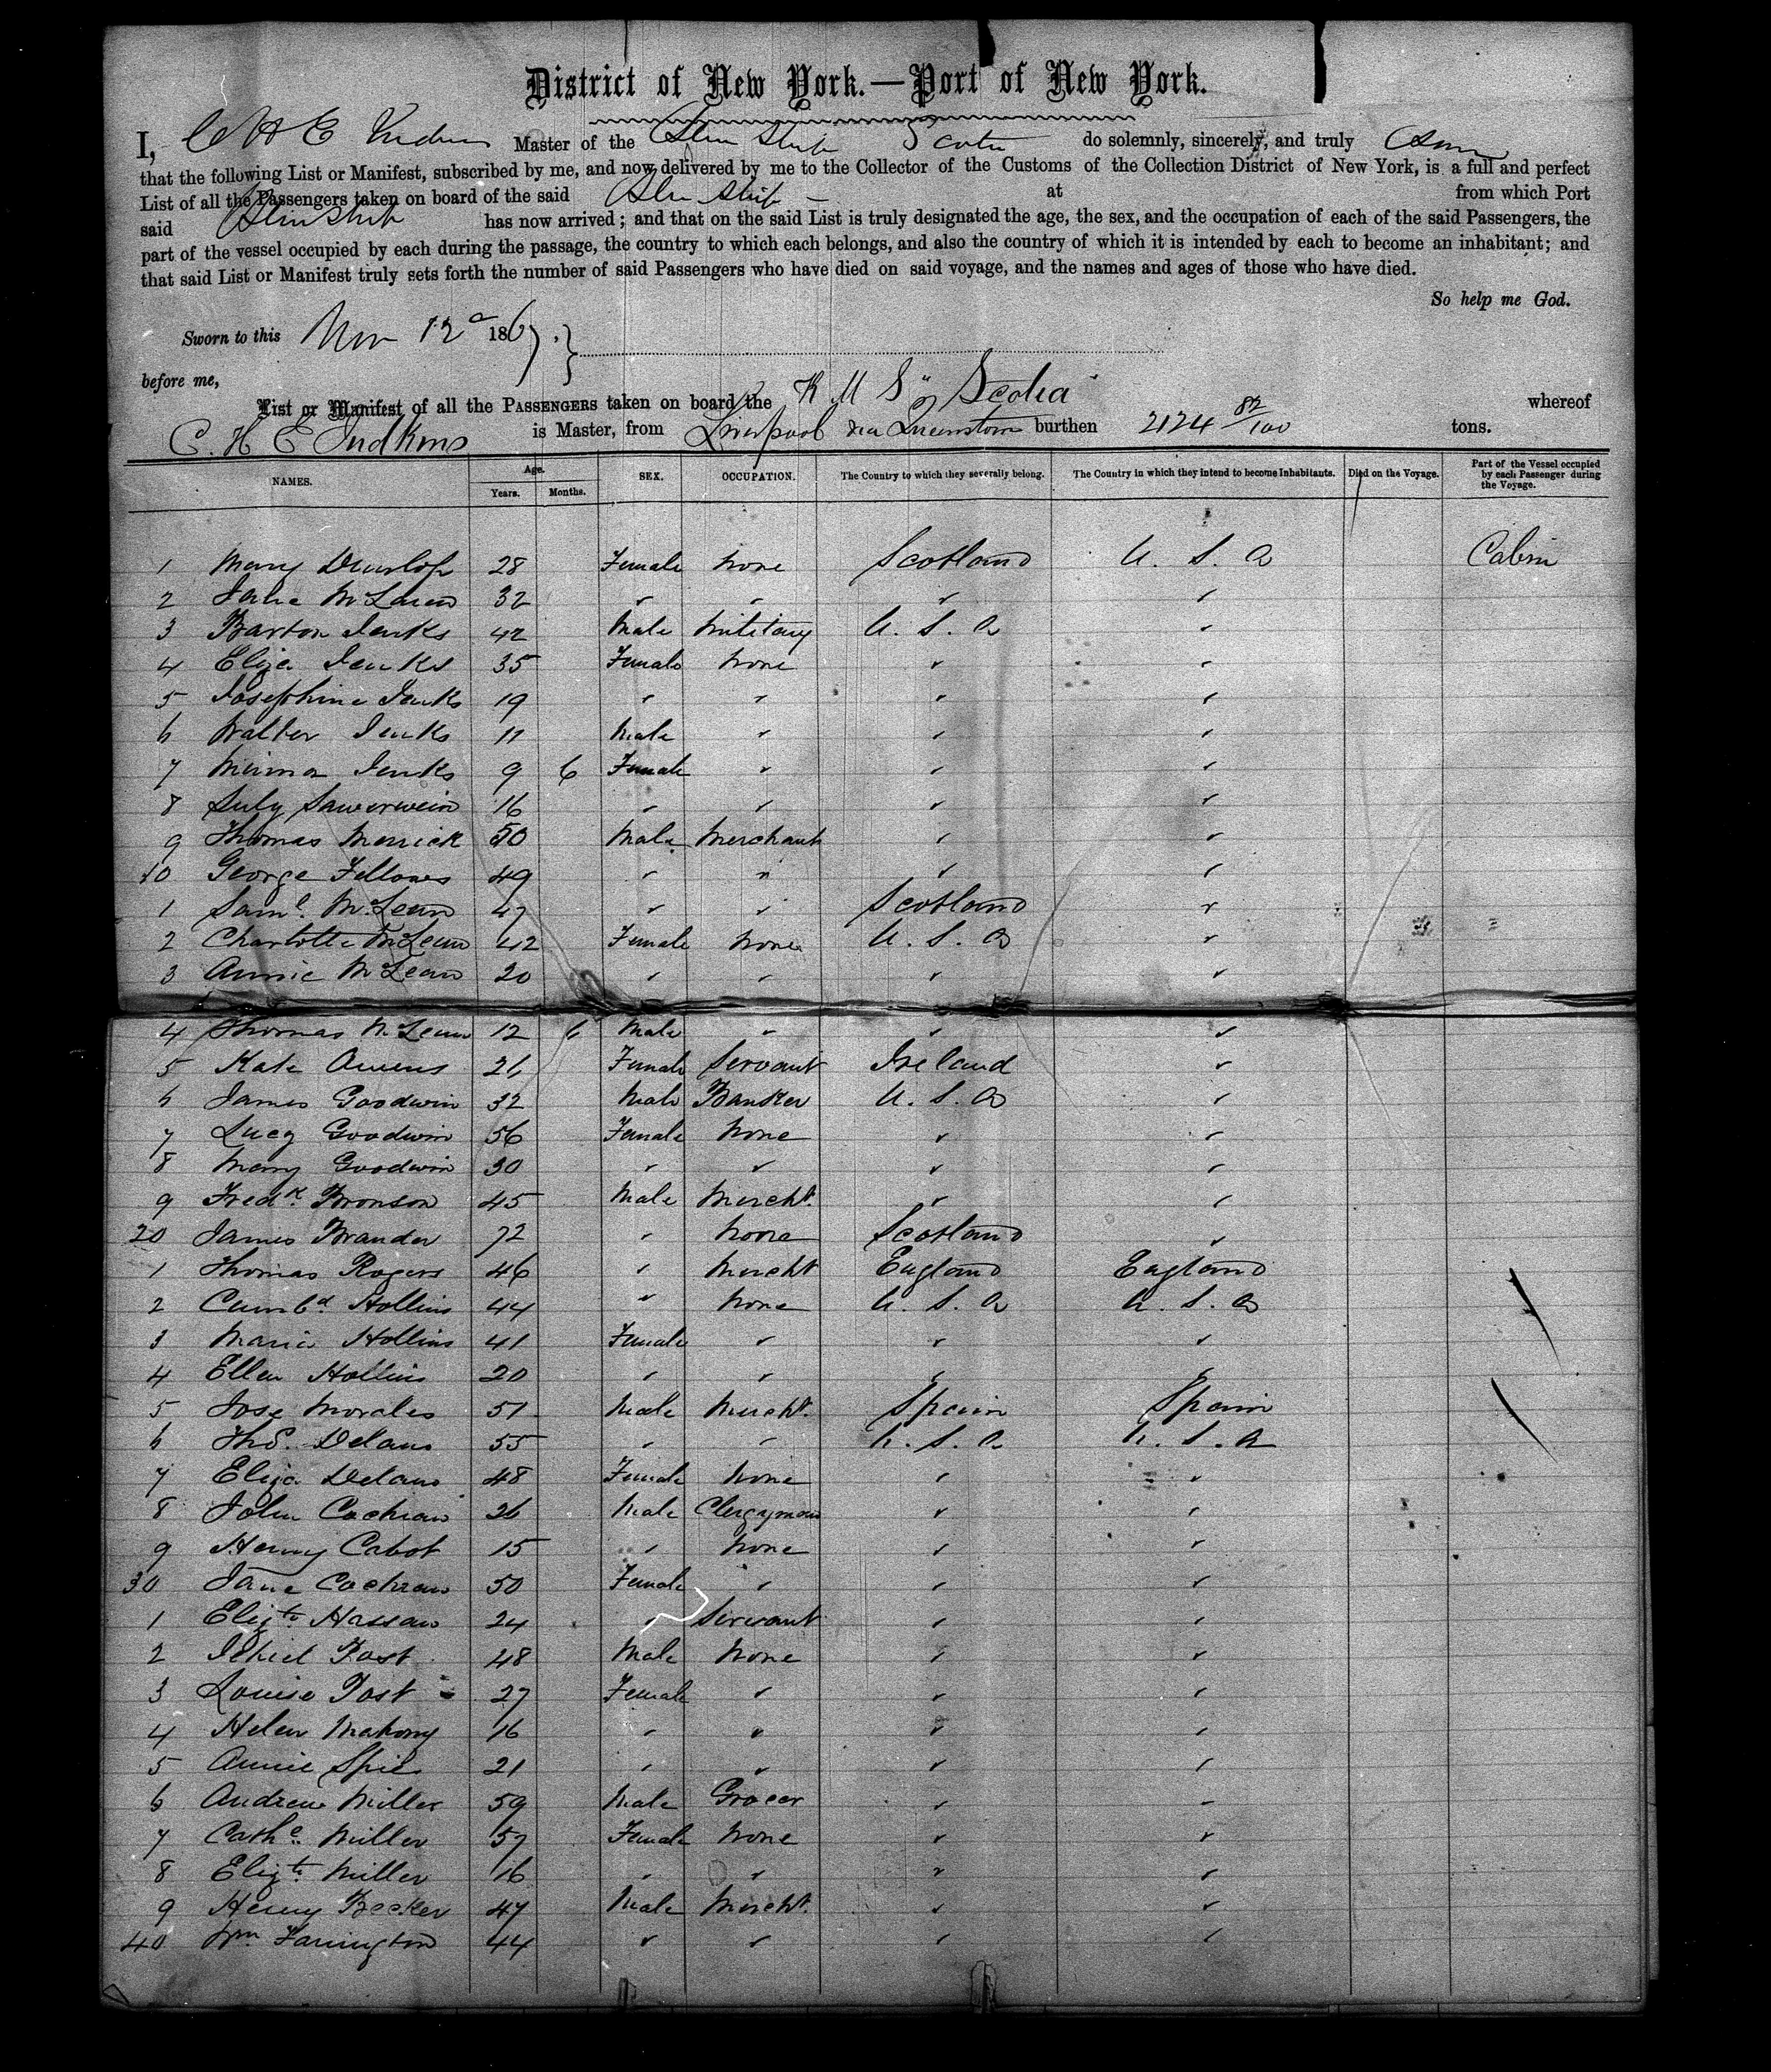 District of New York.—Port of New York.
I, C H E Judkins Master of the Stm Ship Scotia do solemnly, sincerely, and truly
that the following List or Manifest, subscribed by me, and now delivered by me to the Collector of the Customs of the Collection District of New York, is a full and perfect
List of all the Passengers taken on board of the said Stm Ship at from which Port
said Stm Ship has now arrived; and that on the said List is truly designated the age, the sex, and the occupation of each of the said Passengers, the
part of the vessel occupied by each during the passage, the country to which each belongs, and also the country of which it is intended by each to become an inhabitant; and
that said List or Manifest truly sets forth the number of said Passengers who have died on said voyage, and the names and ages of those who have died.
So help me God.
Sworn to this Nov 12 1867
before me,
List or Manifest of all the PASSENGERS taken on board the R M S "Scotia" whereof
C. H E Judkins is Master, from Liverpool via Queenstown burthen 2124 82/100 tons.
NAMES. Age. Years. Months. SEX. OCCUPATION. The Country to which they severally belong. The Country in which they intend to become Inhabitants. Died on the Voyage. Part of the Vessel occupied by each Passenger during the Voyage.
1 Mary Dunlop 28 Female None Scotland U. S. A Cabin
2 Jane McLaren 32 " " " "
3 Barton Jenks 42 Male Military U. S. A "
4 Eliza Jenks 35 Female None " "
5 Josephine Jenks 19 " " " "
6 Walter Jenks 11 Male " " "
7 Minna Jenks 9 6 Female " " "
8 July Sawerwein 16 " " " "
9 Thomas Merrick 50 Male Merchant " "
10 George Fellows 49 " " " "
1 Saml. McLean 47 " " Scotland "
2 Charlotte McLean 42 Female None U. S. A "
3 Annie McLean 20 " " " "
4 Thomas McLean 12 6 Male " " "
5 Kate Owens 26 Female Servant Ireland "
6 James Goodwin 32 Male Banker U. S. A "
7 Lucy Goodwin 56 Female None " "
8 Mary Goodwin 30 " " " "
9 Fredk. Bronson 45 Male Mercht. " "
20 James Brander 72 " None Scotland "
1 Thomas Rogers 46 " Mercht England England
2 Cumbd Hollins 44 " None U. S. A U. S. A
3 Maria Hollins 41 Female " " "
4 Ellen Hollins 20 " " " "
5 Jose Morales 51 Male Mercht. Spain Spain
6 Thos. Delano 55 " " U. S. A U. S. A
7 Eliza Delano 48 Female None " "
8 John Cochran 26 Male Clergyman " "
9 Henry Cabot 15 " None " "
30 Jane Cochran 50 Female " " "
1 Elizth Hassan 24 " Servant " "
2 Post 48 Male None " "
3 Louise Post 27 Female " " "
4 Helen Mahony 16 " " " "
5 Annie Spies 21 " " " "
6 Andrew Miller 59 Male Grocer " "
7 Cathe. Miller 57 Female None " "
8 Elizth Miller 16 " " " "
9 Henry Becker 47 Male Mercht. " "
40 Wm Farrington 44 " " " "